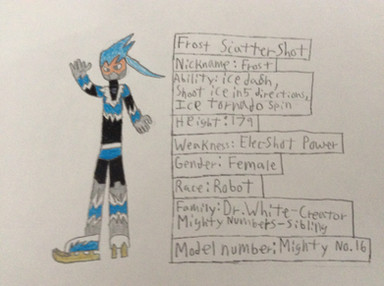 Frost ScatterShot
Nickname: Frost
Ability: ice dash,
Shoot ice in 5 directions,
Ice tornado spin
Height: 179
Weakness: Elec-Shot Power
Gender: Female
Race: Robot
Family: Dr. White-Creator
Mighty Numbers-Sibling
Model number: Mighty No. 16